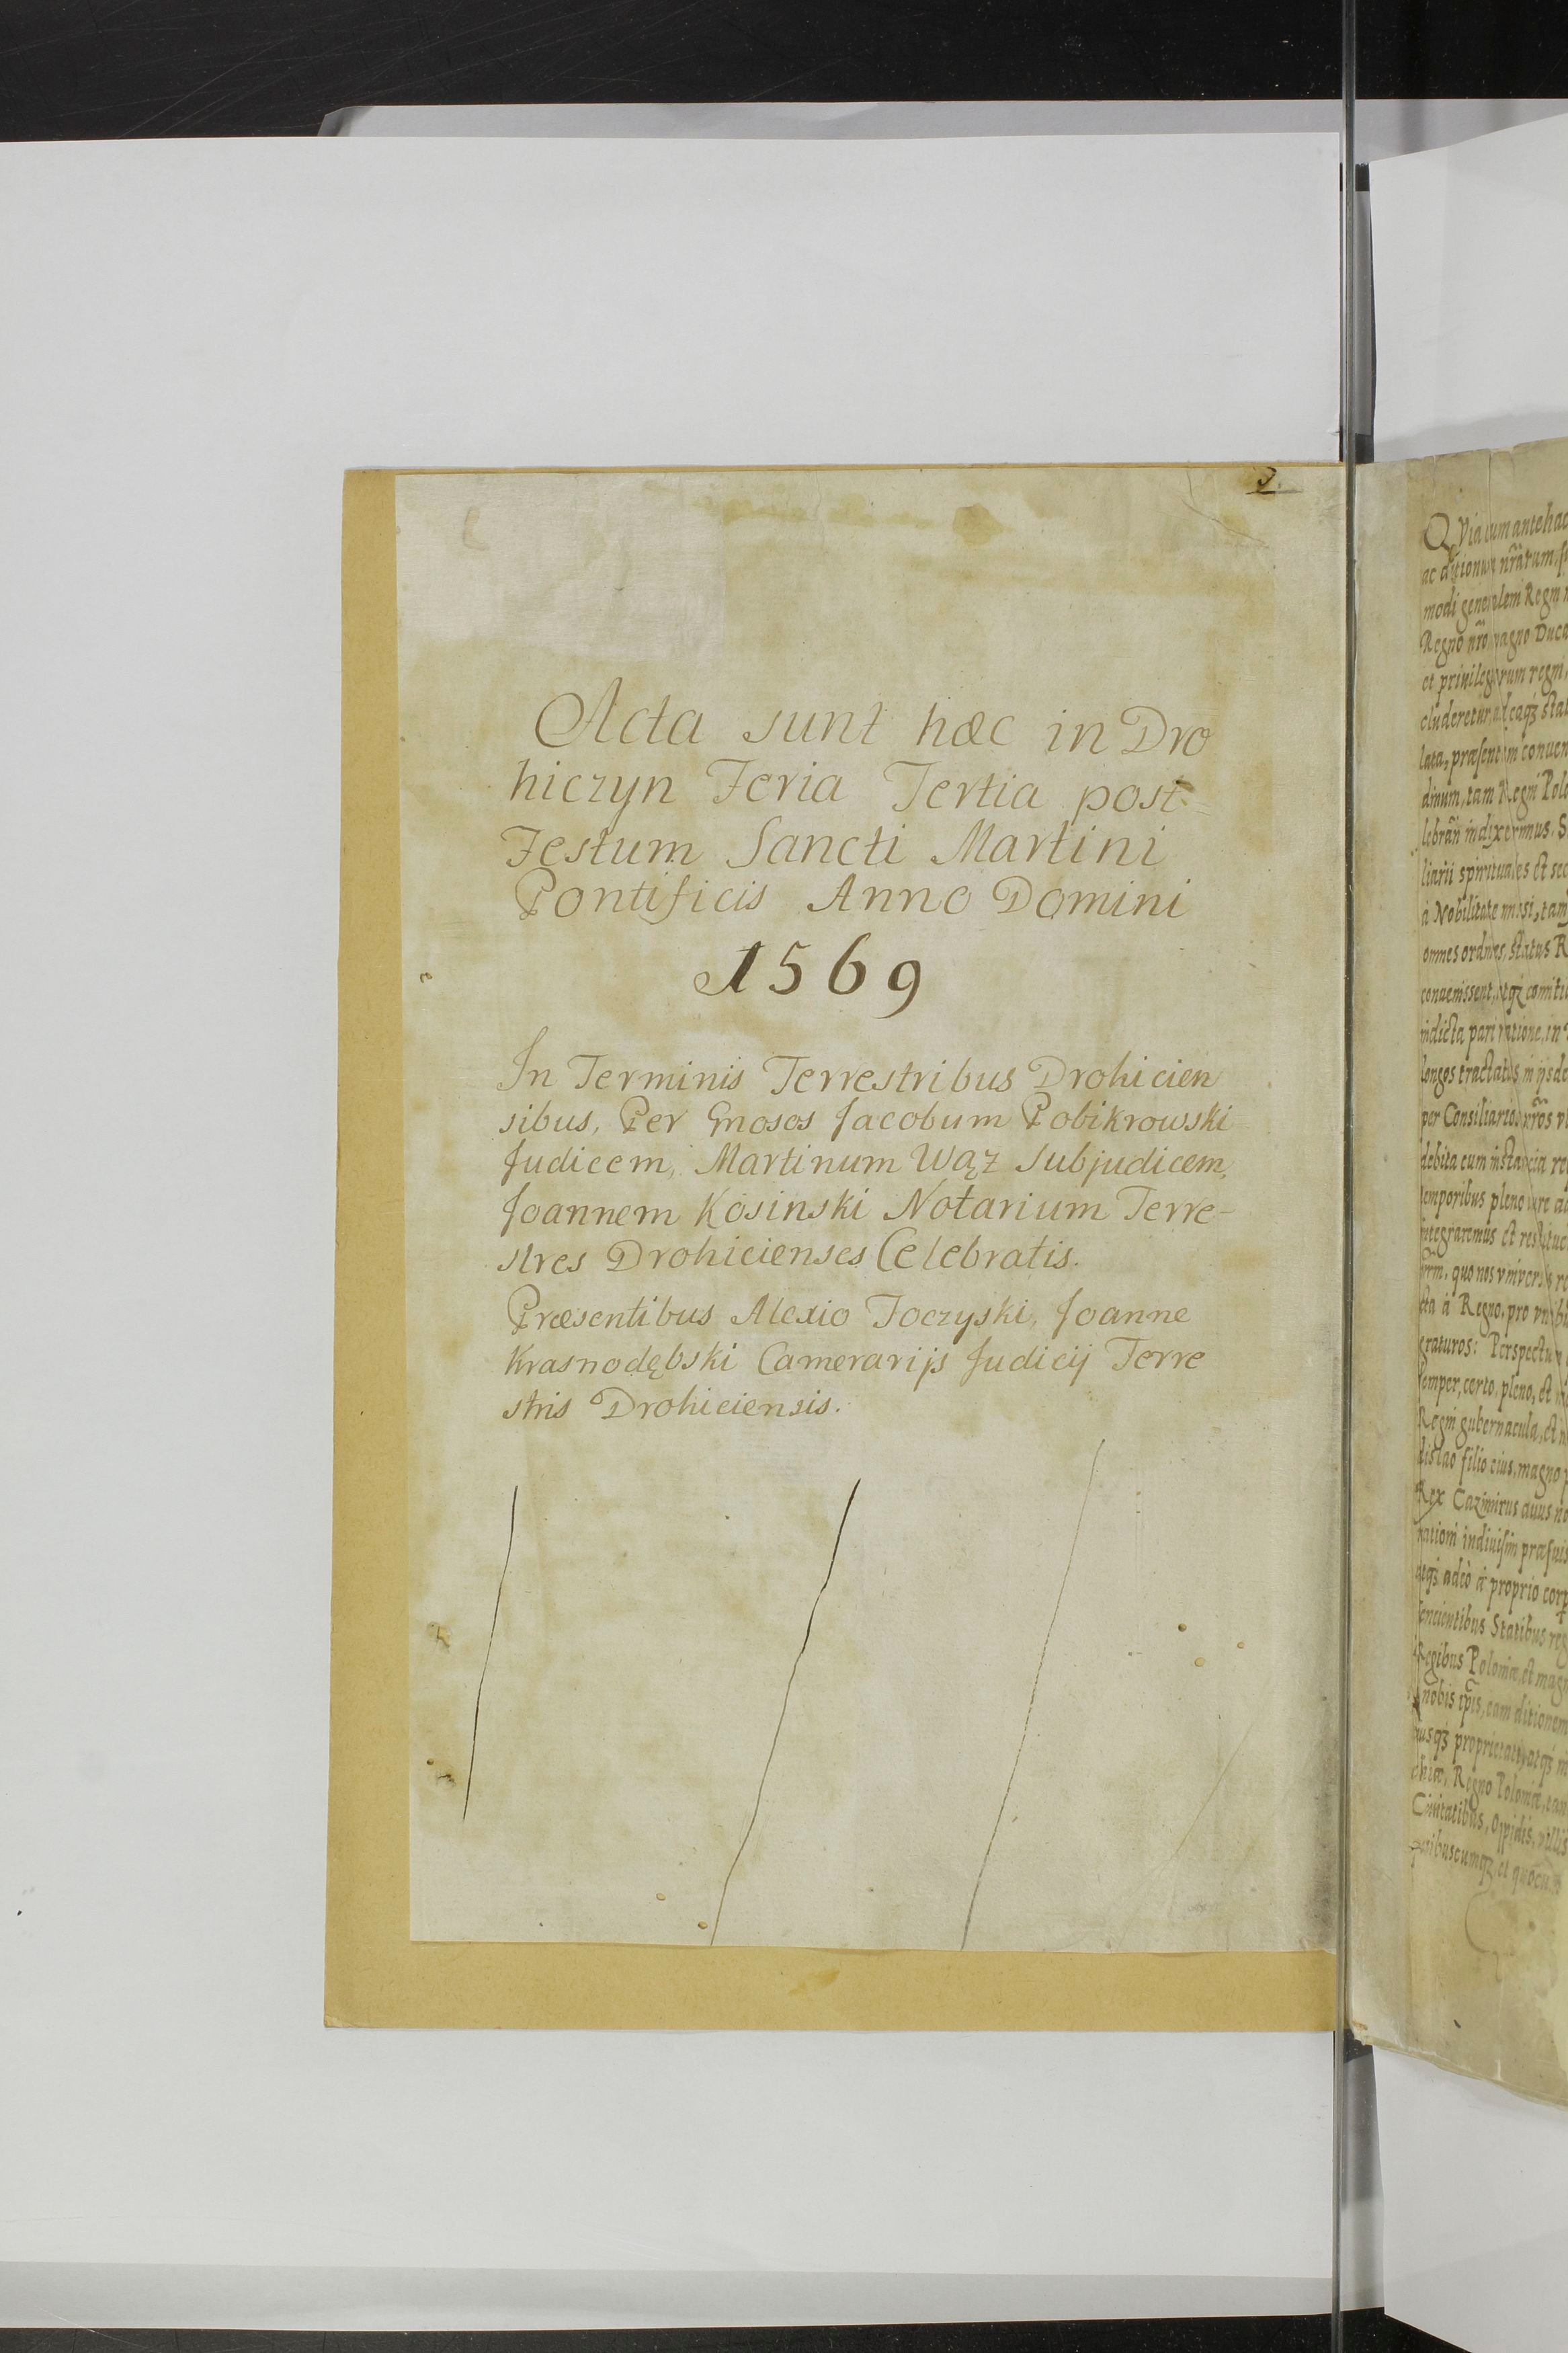 2.
Acta sunt hæc in Dro
hiczyn Feria Tertia post
Festum Sancti Martini
Pontificis Anno Domini
1569
In Terminis Terrestribus Drohicien
sibus, Per Gnosos Jacobum Pobikrowski
Judicem, Martinum Wąż Subjudicem,
Joannem Kosinski Notarium Terre-
stres Drohicienses Celebratis.
Præsentibus Alexio Toczyski, Joanne
Krasnodębski Camerarijs Judicij Terre
stris Drohiciensis.
Quia cum antehac
modi generalem Regni
et privilegiorum regni,
lata, præsentim conven
dinum, tam Regni Polo
liarii spirituales et sec
à Nobilitate missi, tam
omnes ordines, status R
indicta pari ratione, in
longos tractatus in ijsde
per Consiliarios nr̃os
debita cum instancia re
temporibus pleno iure
cta à Regno, pro
eraturos: Perspectu
semper, certo, pleno, et
Regni gubernacula, et
dislao filio eius, magno
Rex Cazimirus avus no
atqꝫ adeò à proprio corp
sencientibus Statibus reg
Regibus Poloniæ, et mag
nobis ip̃is, eam ditionem
usqꝫ proprietati, atqꝫ in
chiæ, Regno Poloniæ, tan
Civitatibus, Oppidis, villis
quibuscumqꝫ, et quocu